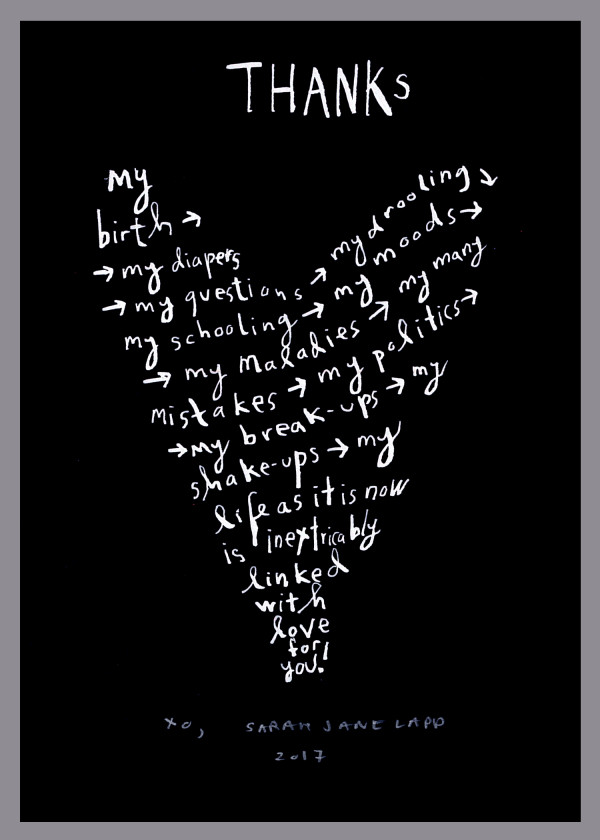 THANKS
my
birth → my drooling ↘
→ my diapers ↗ moods →
→ my questions → my ↗ my many
my schooling → my politics →
→ my maladies ↗
mistakes → my
→ my break-ups → my
shake-ups → my
life as it is now
is inextricably
linked
with
love
for
you!
xo, SARAH JANE LAPP
2017